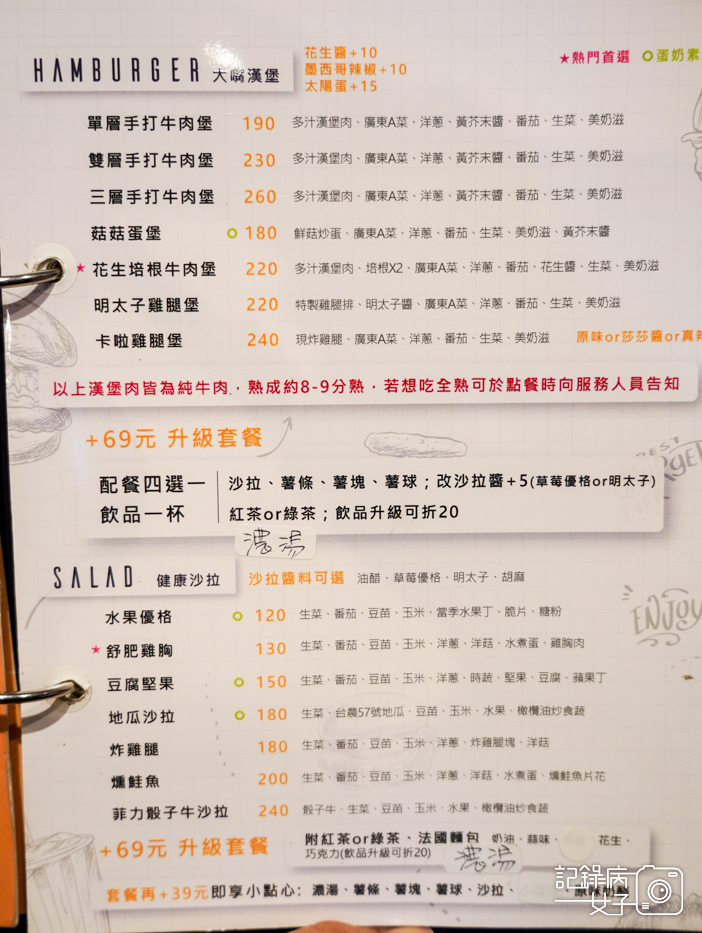 HAMBURGER 大嘴漢堡
花生醬+10
墨西哥辣椒+10
太陽蛋+15
★熱門首選 蛋奶素
單層手打牛肉堡 190 多汁漢堡肉、廣東A菜、洋蔥、黃芥末醬、番茄、生菜、美奶滋
雙層手打牛肉堡 230 多汁漢堡肉、廣東A菜、洋蔥、黃芥末醬、番茄、生菜、美奶滋
三層手打牛肉堡 260 多汁漢堡肉、廣東A菜、洋蔥、黃芥末醬、番茄、生菜、美奶滋
菇菇蛋堡 180 鮮菇炒蛋、廣東A菜、洋蔥、番茄、生菜、美奶滋、黃芥末醬
★花生培根牛肉堡 220 多汁漢堡肉、培根X2、廣東A菜、洋蔥、番茄、花生醬、生菜、美奶滋
明太子雞腿堡 220 特製雞腿排、明太子醬、廣東A菜、洋蔥、番茄、生菜、美奶滋
卡啦雞腿堡 240 現炸雞腿、廣東A菜、洋蔥、番茄、生菜、美奶滋 原味or莎莎醬or真辣
以上漢堡肉皆為純牛肉，熟成約8-9分熟，若想吃全熟可於點餐時向服務人員告知
+69元 升級套餐
配餐四選一 沙拉、薯條、薯塊、薯球；改沙拉醬+5(草莓優格or明太子)
飲品一杯 紅茶or綠茶；飲品升級可折20
濃湯
BEST
ENJOY
SALAD 健康沙拉 沙拉醬料可選 油醋、草莓優格、明太子、胡麻
水果優格 120 生菜、番茄、豆苗、玉米、當季水果丁、脆片、糖粉
★舒肥雞胸 130 生菜、番茄、豆苗、玉米、洋蔥、洋菇、水煮蛋、雞胸肉
豆腐堅果 150 生菜、番茄、豆苗、玉米、洋蔥、時蔬、堅果、豆腐、蘋果丁
地瓜沙拉 180 生菜、台農57號地瓜、豆苗、玉米、水果、橄欖油炒食蔬
炸雞腿 180 生菜、番茄、豆苗、玉米、洋蔥、炸雞腿塊、洋菇
燻鮭魚 200 生菜、番茄、豆苗、玉米、洋蔥、洋菇、水煮蛋、燻鮭魚片花
菲力骰子牛沙拉 240 骰子牛、生菜、豆苗、玉米、水果、橄欖油炒食蔬
+69元 升級套餐
附紅茶or綠茶、法國麵包 奶油、蒜味、花生、
巧克力(飲品升級可折20)
濃湯
套餐再+39元即享小點心：濃湯、薯條、薯塊、薯球、沙拉、
記錄病
女子